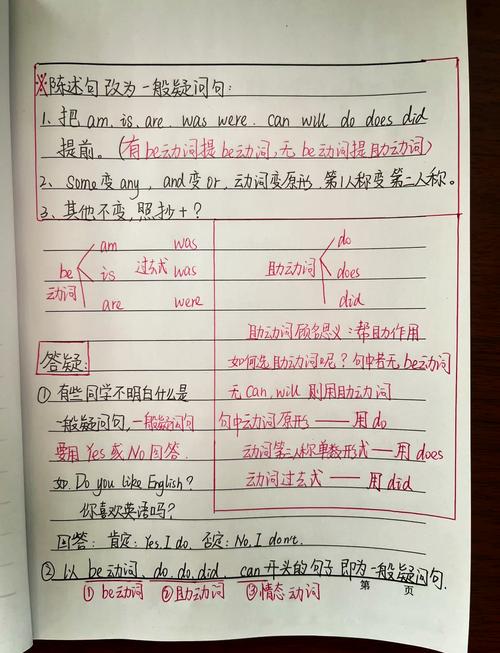 ※陈述句改为一般疑问句:
1、把 am. is. are. was were. can will do does did
提前。(有be动词提be动词,无be动词提助动词)
2、Some变any, and变or, 动词变原形. 第1人称变第二人称。
3、其他不变,照抄+?
be动词
am was
is 过去式 was
are were
助动词
do
does
did
助动词顾名思义:帮助作用
如何选助动词呢?句中若无be动词
无can, will 则用助动词
句中动词原形——用do
动词第三人称单数形式—用does
动词过去式——用did
答疑:
①有些同学不明白什么是
一般疑问句,一般疑问句
要用 Yes 或 No 回答.
如. Do you like English?
你喜欢英语吗?
回答: 肯定: Yes, I do. 否定: No, I don't.
②以be动词、do. do. did. can开头的句子即为一般疑问句.
①be动词 ②助动词 ③情态动词
第 页